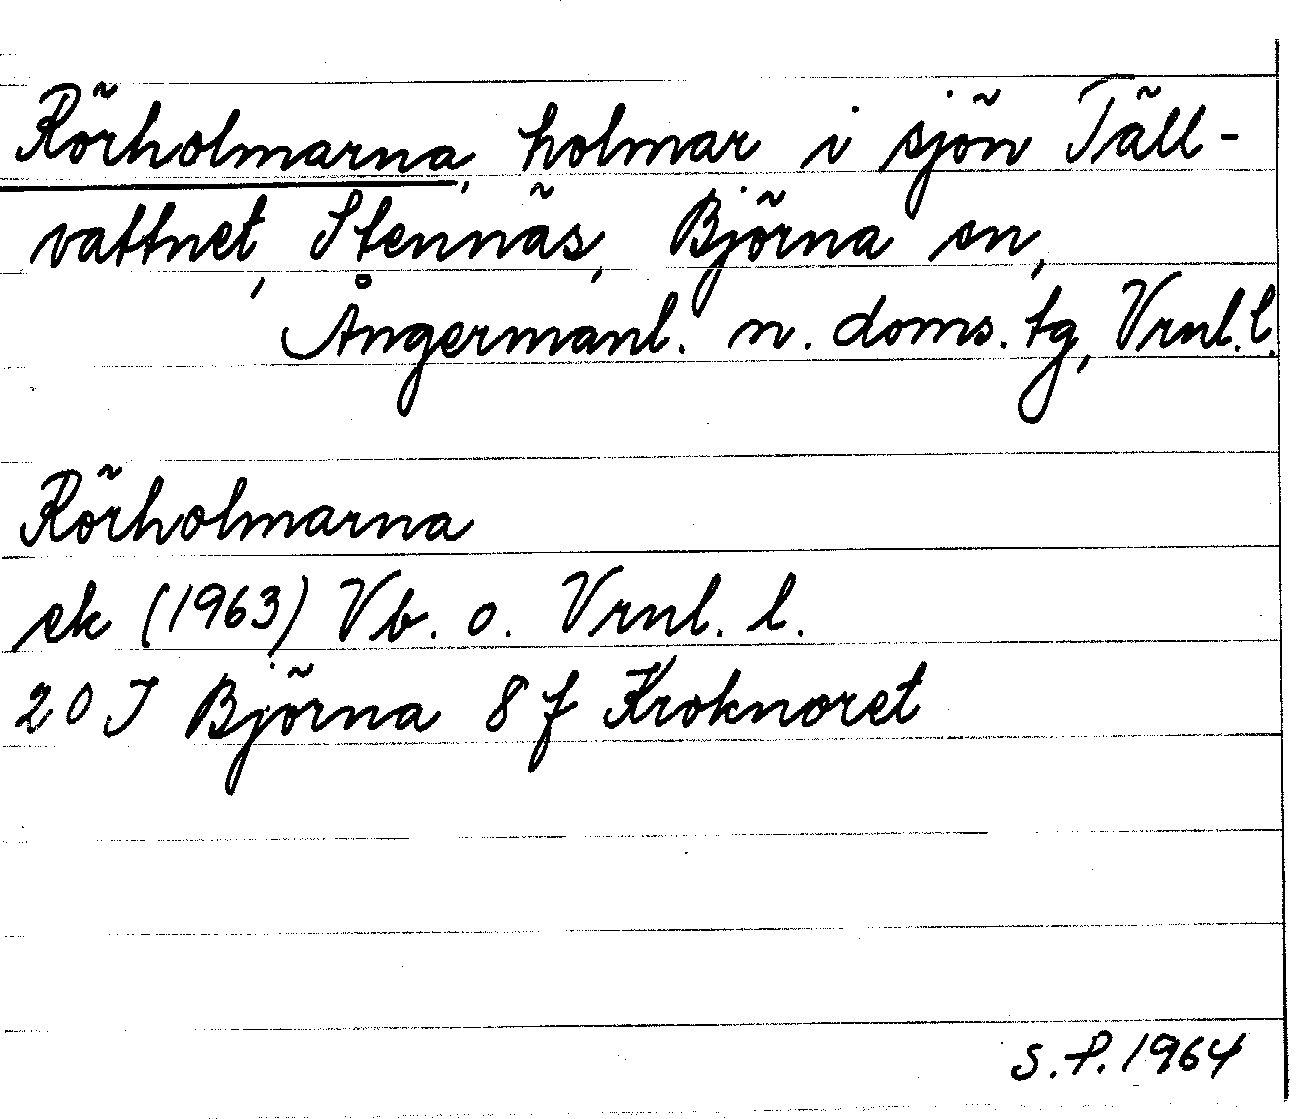 Rörholmarna, holmar i sjön Täll-
vattnet, Stennäs, Björna sn,
Ångermanl. n. doms. tg, Vrnl. l.
Rörholmarna
ek (1963) Vb. o. Vrnl. l.
20 J Björna 8 f Kroknoret
S.P. 1964